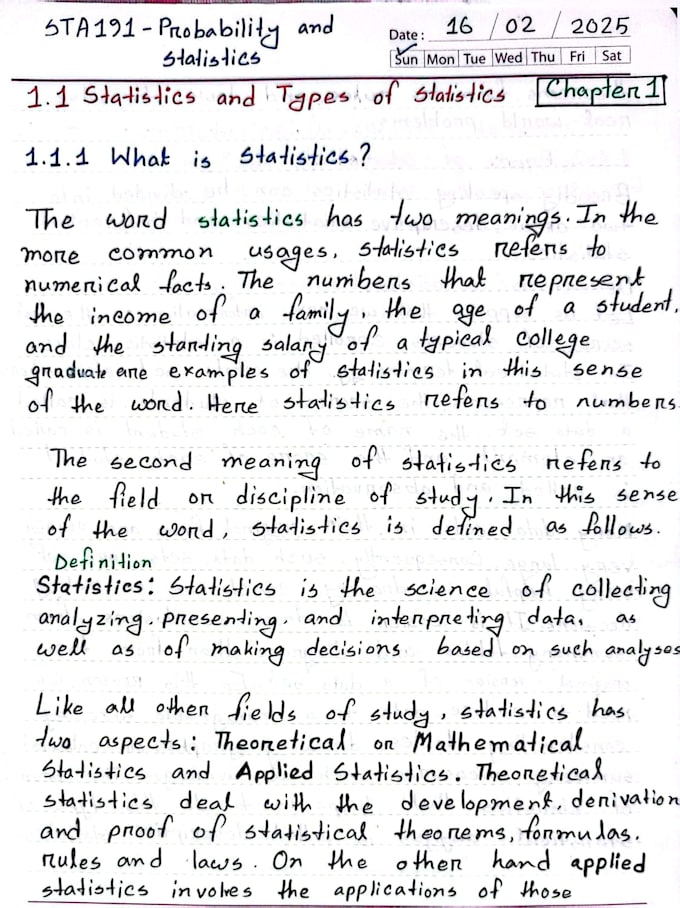 STA191 - Probability and
Statistics
Date: 16 / 02 / 2025
Sun Mon Tue Wed Thu Fri Sat
1.1 Statistics and Types of Statistics
Chapter 1
1.1.1 What is Statistics?
The word statistics has two meanings. In the
more common usages, statistics refers to
numerical facts. The numbers that represent
the income of a family, the age of a student,
and the starting salary of a typical college
graduate are examples of statistics in this sense
of the word. Here statistics refers to numbers.
The second meaning of statistics refers to
the field or discipline of study. In this sense
of the word, statistics is defined as follows.
Definition
Statistics: Statistics is the science of collecting
analyzing, presenting, and interpreting data, as
well as of making decisions based on such analyses
Like all other fields of study, statistics has
two aspects: Theoretical or Mathematical
Statistics and Applied Statistics. Theoretical
statistics deal with the development, derivation
and proof of statistical theorems, formulas,
rules and laws. On the other hand applied
statistics involves the applications of those